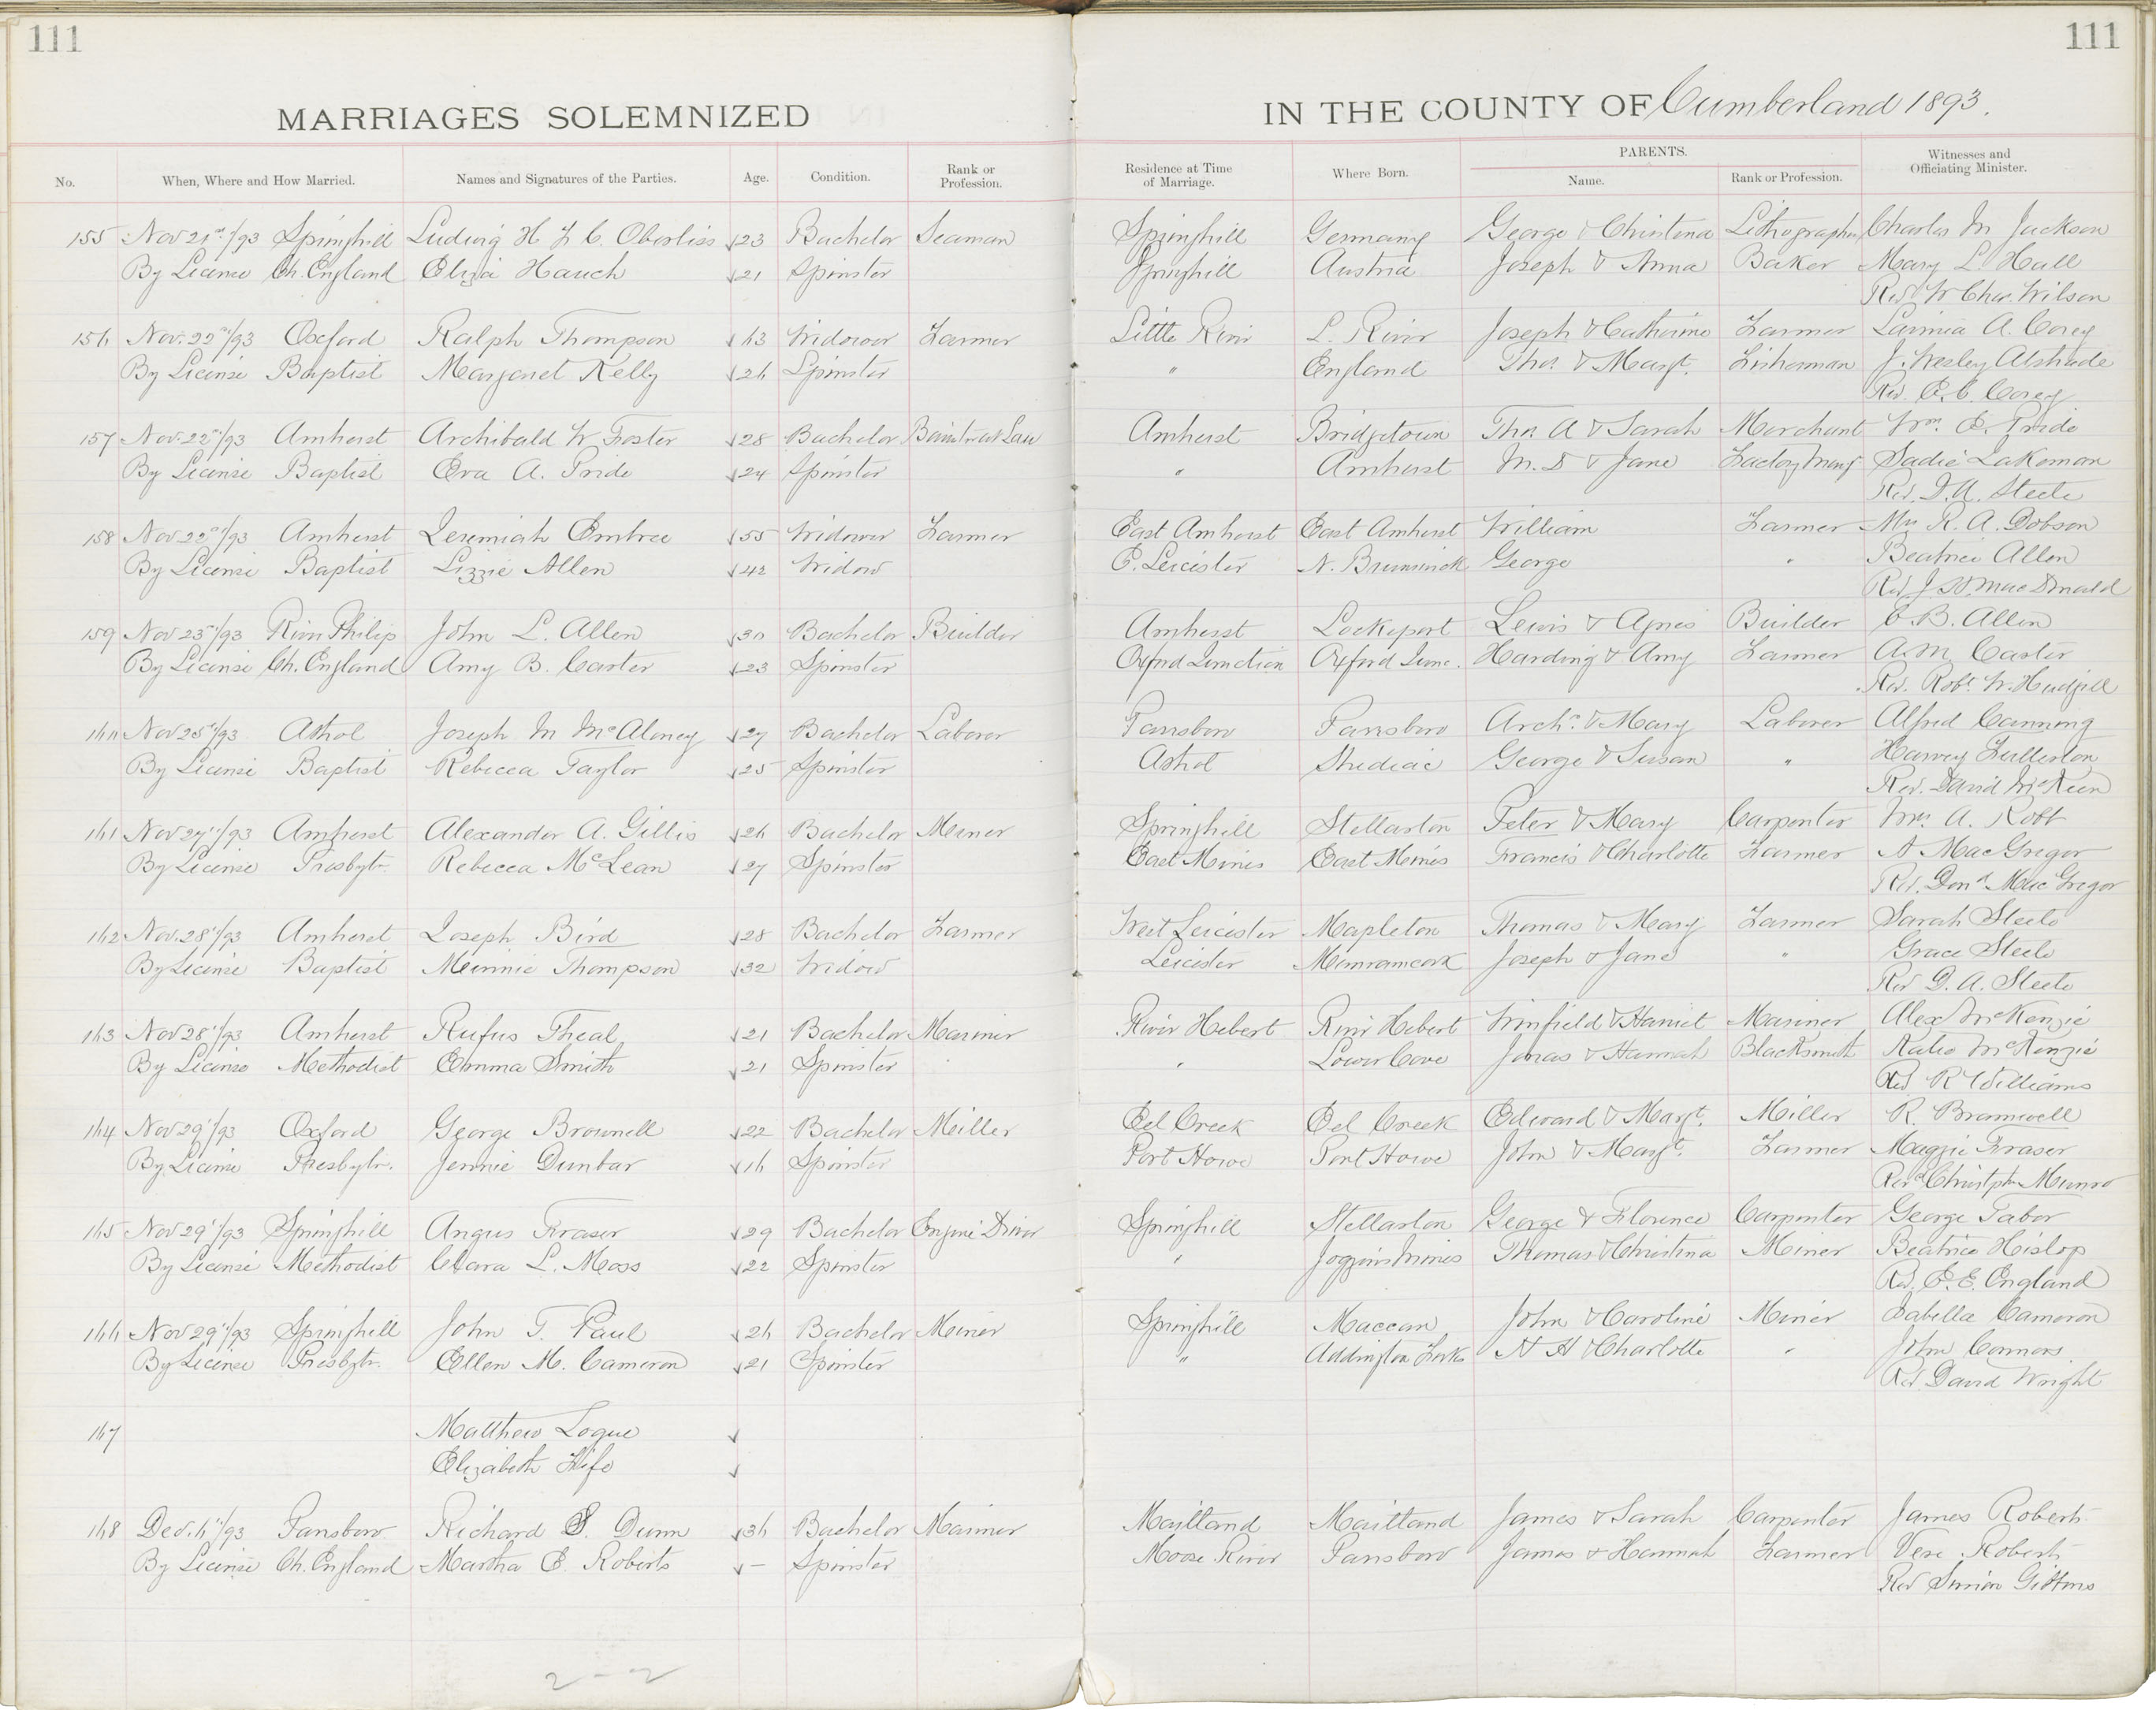 111
111
MARRIAGES SOLEMNIZED
IN THE COUNTY OF Cumberland 1893.
No. When, Where and How Married. Names and Signatures of the Parties. Age. Condition. Rank or Profession. Residence at Time of Marriage. Where Born. PARENTS. Name. Rank or Profession. Witnesses and Officiating Minister.
155 Nov 21st/93 Springhill Ludwig H F C. Oberliss 23 Bachelor Seaman Springhill Germany George & Christena Lithographer Charles M Jackson
By License Ch. England Eliza Hauch 21 Spinster Springhill Austria Joseph & Anna Baker Mary L. Hall
Rev W Chas. Wilson
156 Nov. 22nd/93 Oxford Ralph Thompson 63 Widower Farmer Little River L. River Joseph & Catherine Farmer Lavinia A. Corey
By License Baptist Margaret Kelly 26 Spinster " England Thos. & Margt. Fisherman J. Wesley
Rev. E. C. Corey
157 Nov. 22nd/93 Amherst Archibald W Foster 28 Bachelor Barrister at Law Amherst Bridgetown Thos. A & Sarah Merchant Wm. E. Pride
By License Baptist Eva A. Pride 24 Spinster " Amherst M. D & Jane Factory Sadie Lakeman
Rev. D. A. Steele
158 Nov 22nd/93 Amherst Jeremiah Embree 55 Widower Farmer East Amherst East Amherst William Farmer Mrs R. A. Dobson
By License Baptist Lizzie Allen 42 Widow E. Leicester N. Brunswick George " Beatrice Allen
Rev J. W. MacDonald
159 Nov 23rd/93 River Philip John L. Allen 30 Bachelor Builder Amherst Lockeport Lewis & Agnes Builder C. B. Allen
By License Ch. England Amy B. Carter 23 Spinster Oxford Junction Oxford Junc. Harding & Amy Farmer A. M. Carter
Rev. Robt. W. Hudgell
160 Nov 25th/93 Athol Joseph M McAloney 27 Bachelor Laborer Parrsboro Parrsboro Archd. & Mary Laborer Alfred Canning
By License Baptist Rebecca Taylor 25 Spinster Athol Shediac George & Susan " Harvey Fullerton
Rev. David McKeen
161 Nov 27"/93 Amherst Alexander A. Gillis 26 Bachelor Miner Springhill Stellarton Peter & Mary Carpenter Mrs. A. Robb
By License Presbytn. Rebecca McLean 27 Spinster East Mines East Mines Francis & Charlotte Farmer A MacGregor
Rev. Dond. MacGregor
162 Nov. 28"/93 Amherst Joseph Bird 28 Bachelor Farmer West Leicester Mapleton Thomas & Mary Farmer Sarah Steele
By License Baptist Minnie Thompson 32 Widow Leicester Memramcook Joseph & Jane " Grace Steele
Rev D. A. Steele
163 Nov 28"/93 Amherst Rufus Theal 21 Bachelor Mariner River Hebert River Hebert Winfield & Harriet Mariner Alex McKenzie
By License Methodist Emma Smith 21 Spinster " Lower Cove Jonas & Hannah Blacksmith Katie McKenzie
Rev R Williams
164 Nov 29"/93 Oxford George Brownell 22 Bachelor Miller Eel Creek Eel Creek Edward & Margt. Miller R. Bramwell
By License Presbytn. Jennie Dunbar 16 Spinster Port Howe Port Howe John & Margt. Farmer Maggie Fraser
Revd Christphr Munro
165 Nov 29"/93 Springhill Angus Fraser 29 Bachelor Engine Driver Springhill Stellarton George & Florence Carpenter George Tabor
By License Methodist Clara L. Moss 22 Spinster " Joggins Mines Thomas & Christina Miner Beatrice Hislop
Rev. E. E. England
166 Nov 29"/93 Springhill John T. Paul 26 Bachelor Miner Springhill Maccan John & Caroline Miner Isabella Cameron
By License Presbytn. Ellen M. Cameron 21 Spinster " Addington Forks N H & Charlotte " John Connors
Rev. David Wright
167 Matthew Logue
Elizabeth Fife
168 Dec. 6"/93 Parrsboro Richard S. Dunn 36 Bachelor Mariner Maitland Maitland James & Sarah Carpenter James Roberts
By License Ch. England Martha E. Roberts – Spinster Moose River Parrsboro James & Hannah Farmer Vere Roberts
Rev Simon Gibbons
2 - 2